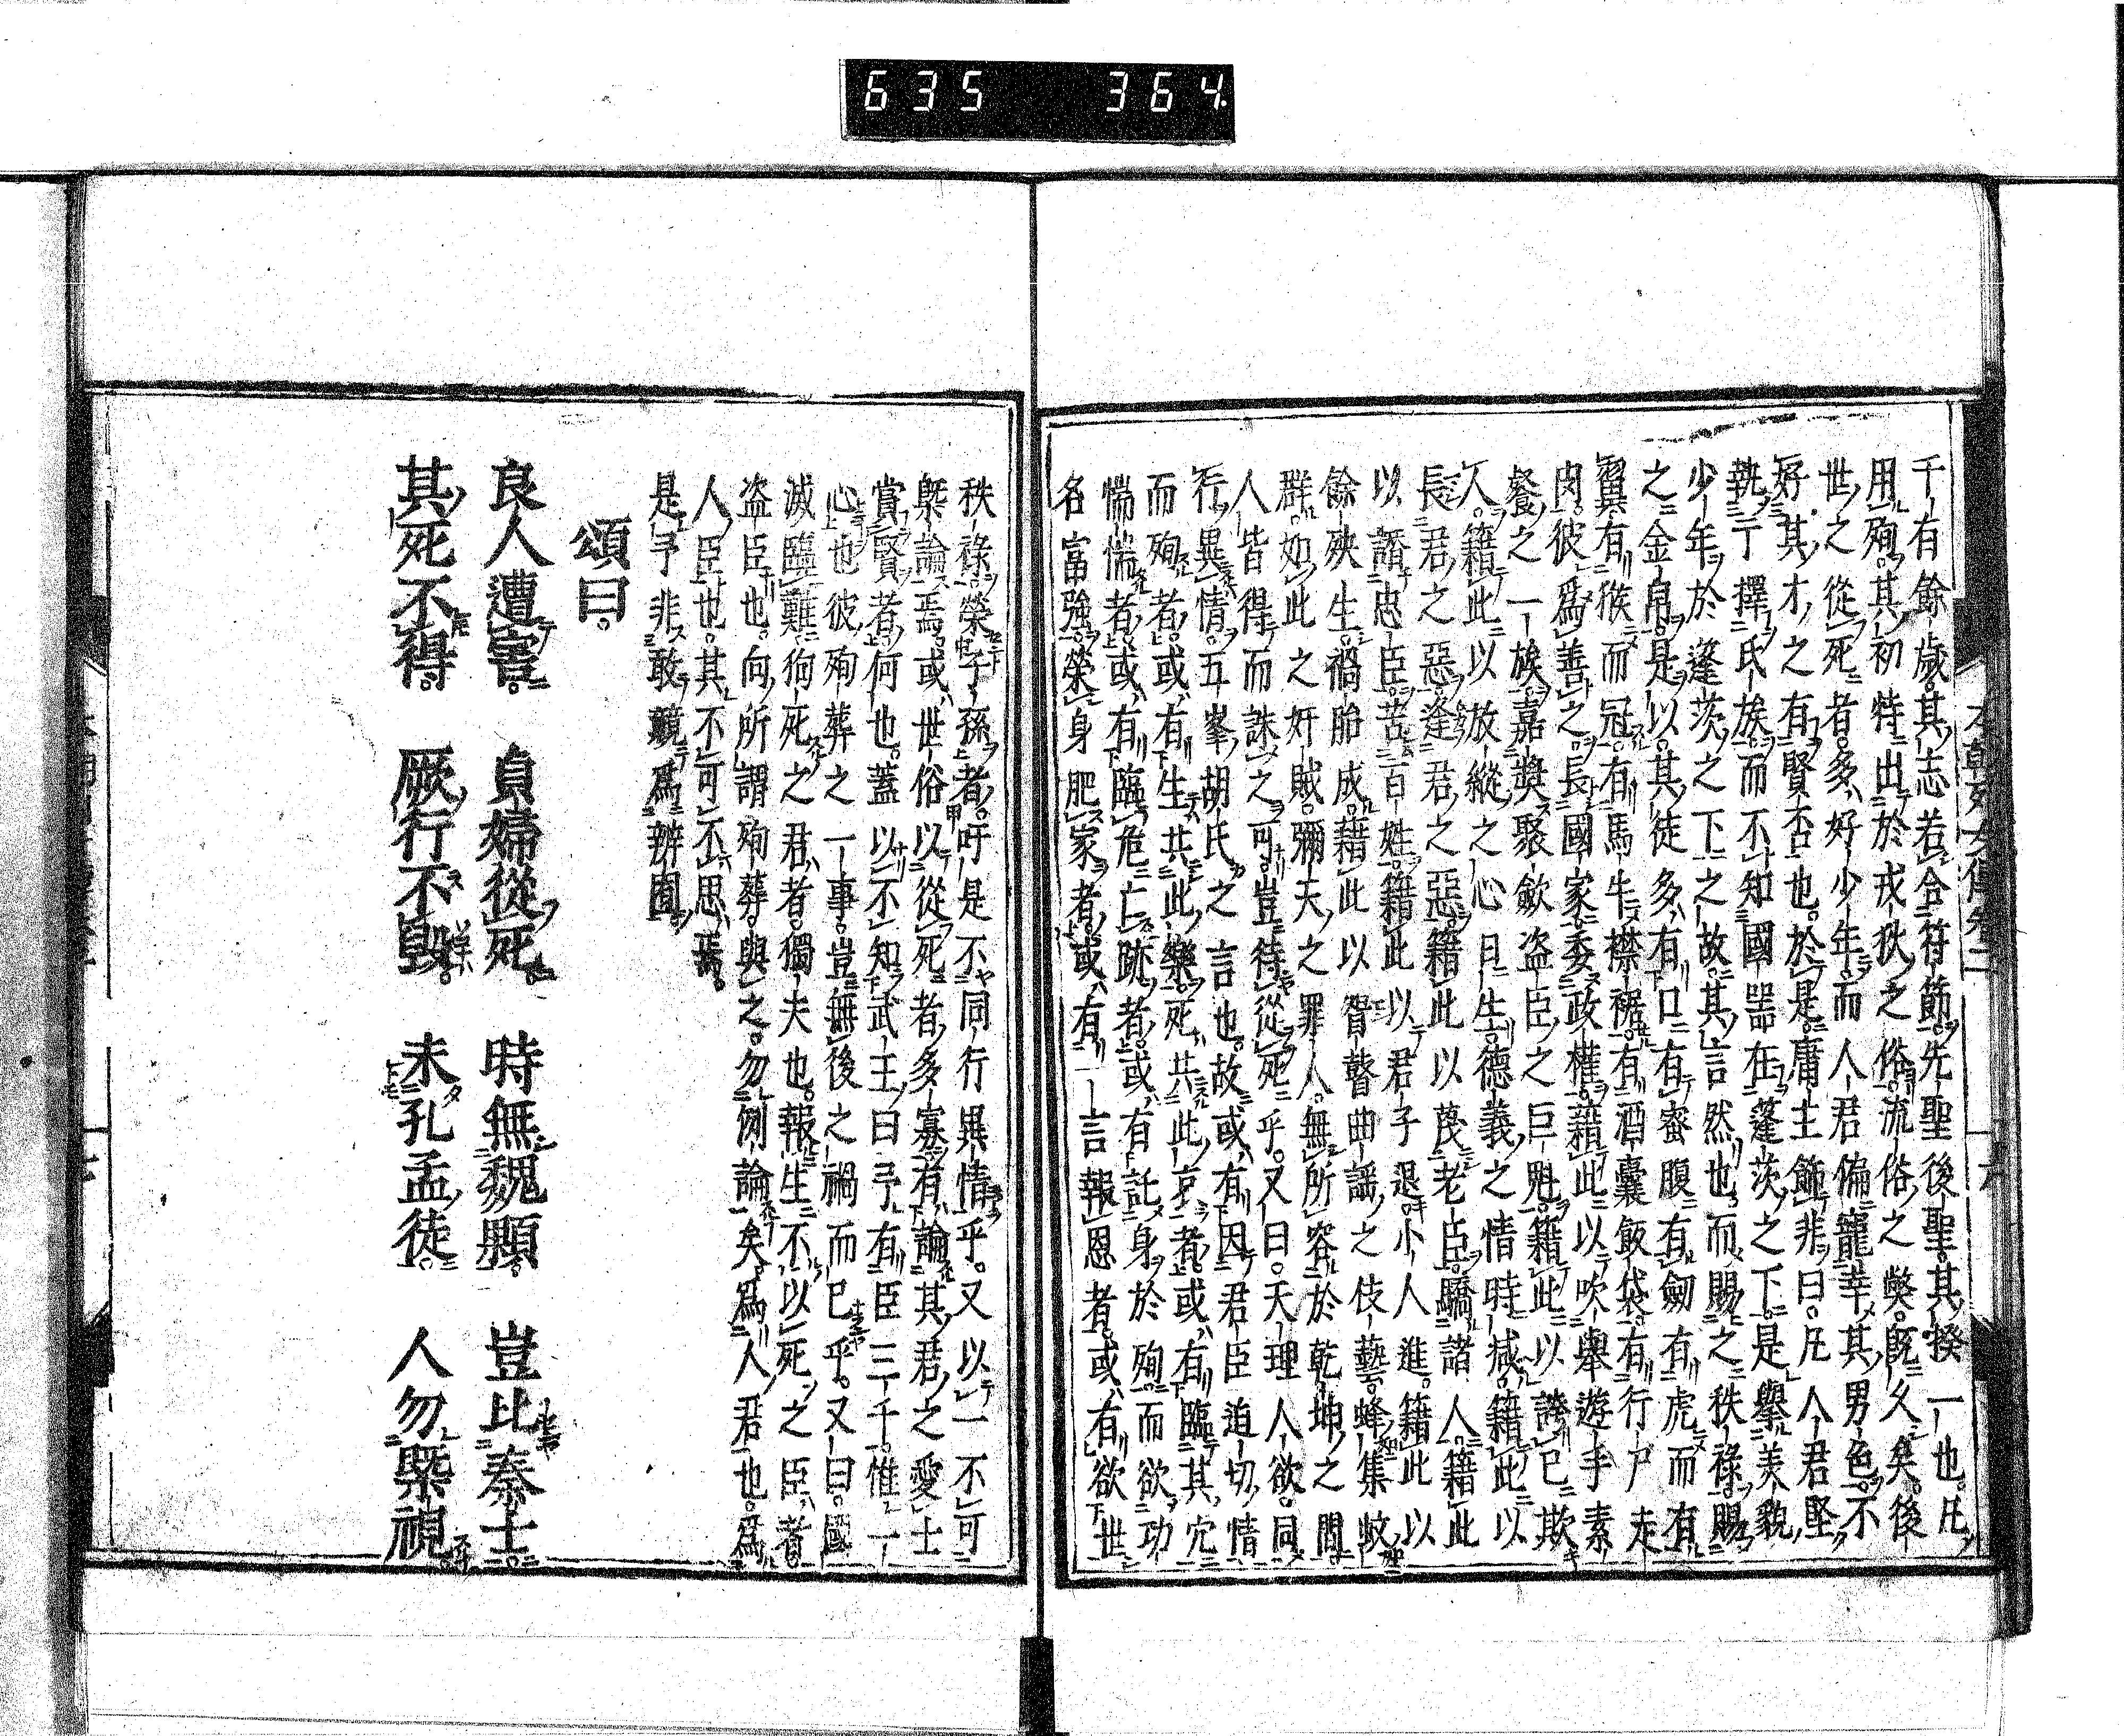 635 364
千有餘歲其志若合符節先聖後聖其揆一也凡
用殉其初特出於戎狄之俗流俗之弊既久矣後
世之從死者多好少年而人君偏寵幸其男色不
好其才之有賢否也於是庸主飾非曰凡人君堅
執丁擇氏族而不知國器在蓬茨之下是擧美貌
少年於蓬茨之下之故其言然也而賜之秩祿賜
之金帛是以其徒多有口有蜜腹有劔有虎而有
翼有猴而冠有馬牛襟裾有酒囊飯袋有行尸走
肉彼爲善之長國家委政權藉此以吹擧遊手素
餐之一族嘉奬聚歛盗臣之巨魁籍此以誇己欺
人籍此以放縱之心日生德義之情時減籍此以
長君之惡逢君之惡籍此以蔑老臣驕諸人籍此
以譖忠臣苦百姓籍此以君子退小人進籍此以
餘殃生禍胎成藉此以瞽曲謡之伎藝蜂集蚊
群如此之奸賊彌天之罪人無所容於乾坤之間
人皆得而誅之可豈待從死乎又曰天理人欲同
行異情五峯胡氏之言也故或有因君臣迫切情
而殉者或有生共此樂死共此哀者或有臨其穴
惴惴者或有臨危亡跡者或有託身於殉而欲功
名富強榮身肥家者或有一言報恩者或有欲世
秩祿榮子孫者吁是不同行異情乎又以一不可
槩論焉或世俗以從死者多寡有論其君之愛士
賞賢者何也蓋以不知武王曰予有臣三千惟一
心也彼殉葬之一事豈無後之禍而已乎又曰國
滅臨難狥死之君者獨夫也報生不以死之臣者
盗臣也向所謂殉葬與之勿例論矣爲人君也爲
人臣也其不可不思焉
是予非敢競爲辨囿
頌曰
良人遭害 貞婦從死 時無魏顆 豈比秦士
其死不得 厥行不毀 未孔孟徒 人勿槩視